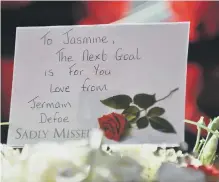 To Jasmine,
The Next Goal
is For You
Love from
Jermain
Defoe
SADLY MISSED